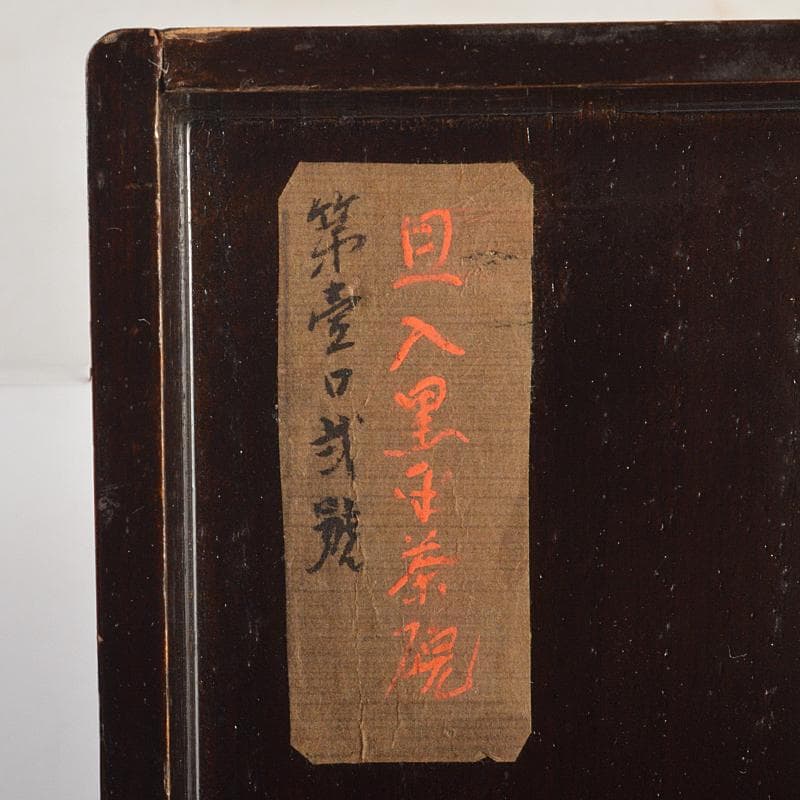 旦入黒平茶碗
第壹口弐號